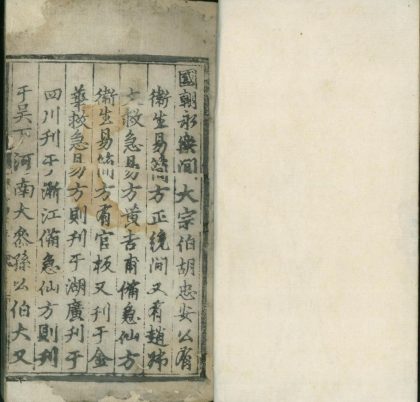 國朝永樂間大宗伯胡忠安公有
衛生易簡方正統間又有趙
救急易方黃吉甫備急仙方
衛生易簡方有官板又刊于金
華救急易方則刊于湖廣刊于
四川刊于浙江備急仙方則刊
于吳下河南大參孫公伯大又